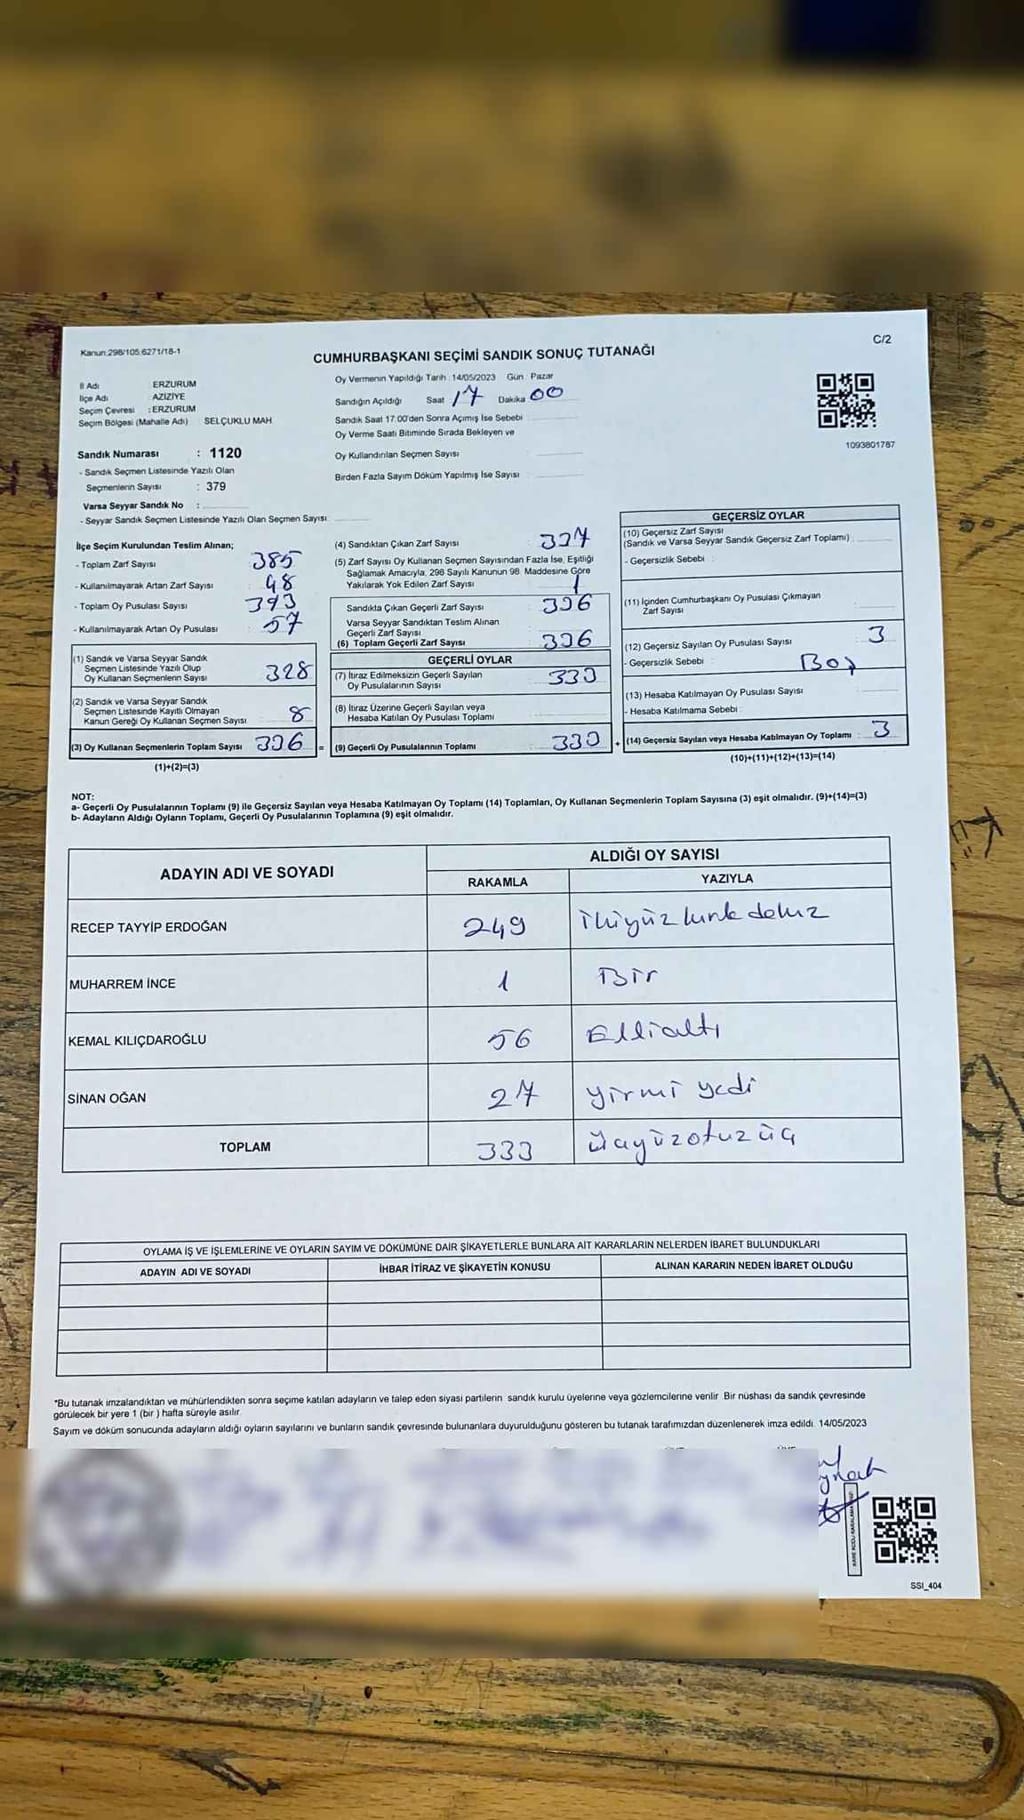 Kanun:298/105.6271/18-1
C/2
CUMHURBAŞKANI SEÇİMİ SANDIK SONUÇ TUTANAĞI
İl Adı : ERZURUM
İlçe Adı : AZİZİYE
Seçim Çevresi : ERZURUM
Seçim Bölgesi (Mahalle Adı) SELÇUKLU MAH
Oy Vermenin Yapıldığı Tarih : 14/05/2023 Gün : Pazar
Sandığın Açıldığı Saat 17 Dakika 00
Sandık Saat 17:00'den Sonra Açımış İse Sebebi
Oy Verme Saati Bitiminde Sırada Bekleyen ve
Oy Kullandırılan Seçmen Sayısı
Birden Fazla Sayım Döküm Yapılmış İse Sayısı
1093801787
Sandık Numarası : 1120
- Sandık Seçmen Listesinde Yazılı Olan
Seçmenlerin Sayısı : 379
Varsa Seyyar Sandık No :
- Seyyar Sandık Seçmen Listesinde Yazılı Olan Seçmen Sayısı
İlçe Seçim Kurulundan Teslim Alınan;
- Toplam Zarf Sayısı 385
- Kullanılmayarak Artan Zarf Sayısı 48
- Toplam Oy Pusulası Sayısı 393
- Kullanılmayarak Artan Oy Pusulası 57
(1) Sandık ve Varsa Seyyar Sandık
Seçmen Listesinde Yazılı Olup
Oy Kullanan Seçmenlerin Sayısı 328
(2) Sandık ve Varsa Seyyar Sandık
Seçmen Listesinde Kayıtlı Olmayan
Kanun Gereği Oy Kullanan Seçmen Sayısı 8
(3) Oy Kullanan Seçmenlerin Toplam Sayısı 336 =
(1)+(2)=(3)
(4) Sandıktan Çıkan Zarf Sayısı : 337
(5) Zarf Sayısı Oy Kullanan Seçmen Sayısından Fazla İse, Eşitliği
Sağlamak Amacıyla, 298 Sayılı Kanunun 98. Maddesine Göre
Yakılarak Yok Edilen Zarf Sayısı 1
Sandıkta Çıkan Geçerli Zarf Sayısı 336
Varsa Seyyar Sandıktan Teslim Alınan
Geçerli Zarf Sayısı
(6) Toplam Geçerli Zarf Sayısı 336
GEÇERLİ OYLAR
(7) İtiraz Edilmeksizin Geçerli Sayılan
Oy Pusulalarının Sayısı 333
(8) İtiraz Üzerine Geçerli Sayılan veya
Hesaba Katılan Oy Pusulası Toplamı
(9) Geçerli Oy Pusulalarının Toplamı 333 +
GEÇERSİZ OYLAR
(10) Geçersiz Zarf Sayısı
(Sandık ve Varsa Seyyar Sandık Geçersiz Zarf Toplamı)
- Geçersizlik Sebebi
(11) İçinden Cumhurbaşkanı Oy Pusulası Çıkmayan
Zarf Sayısı
(12) Geçersiz Sayılan Oy Pusulası Sayısı 3
- Geçersizlik Sebebi Boş
(13) Hesaba Katılmayan Oy Pusulası Sayısı
- Hesaba Katılmama Sebebi
(14) Geçersiz Sayılan veya Hesaba Katılmayan Oy Toplamı : 3
(10)+(11)+(12)+(13)=(14)
NOT:
a- Geçerli Oy Pusulalarının Toplamı (9) ile Geçersiz Sayılan veya Hesaba Katılmayan Oy Toplamı (14) Toplamları, Oy Kullanan Seçmenlerin Toplam Sayısına (3) eşit olmalıdır. (9)+(14)=(3)
b- Adayların Aldığı Oyların Toplamı, Geçerli Oy Pusulalarının Toplamına (9) eşit olmalıdır.
ADAYIN ADI VE SOYADI
ALDIĞI OY SAYISI
RAKAMLA YAZIYLA
RECEP TAYYİP ERDOĞAN 249 ikiyüz kırk dokuz
MUHARREM İNCE 1 Bir
KEMAL KILIÇDAROĞLU 56 Elli altı
SİNAN OĞAN 27 yirmi yedi
TOPLAM 333 üçyüzotuz üç
OYLAMA İŞ VE İŞLEMLERİNE VE OYLARIN SAYIM VE DÖKÜMÜNE DAİR ŞİKAYETLERLE BUNLARA AİT KARARLARIN NELERDEN İBARET BULUNDUKLARI
ADAYIN ADI VE SOYADI İHBAR İTİRAZ VE ŞİKAYETİN KONUSU ALINAN KARARIN NEDEN İBARET OLDUĞU
*Bu tutanak imzalandıktan ve mühürlendikten sonra seçime katılan adayların ve talep eden siyasi partilerin sandık kurulu üyelerine veya gözlemcilerine verilir. Bir nüshası da sandık çevresinde
görülecek bir yere 1 (bir ) hafta süreyle asılır.
Sayım ve döküm sonucunda adayların aldığı oyların sayılarını ve bunların sandık çevresinde bulunanlara duyurulduğunu gösteren bu tutanak tarafımızdan düzenlenerek imza edildi. 14/05/2023
SSI_404